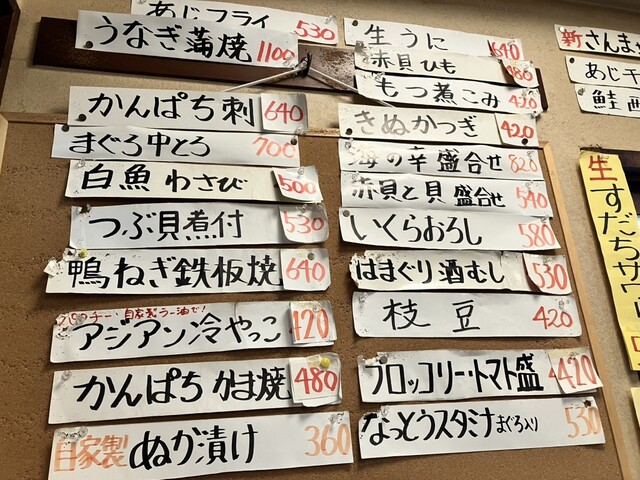 あじフライ 530
うなぎ蒲焼 1100
かんぱち刺 640
まぐろ中とろ 700
白魚わさび 500
つぶ貝煮付 530
鴨ねぎ鉄板焼 640
自家製ラー油で!
アジアン冷やっこ 420
かんぱちかま焼 480
自家製 ぬか漬け 360
生うに 640
赤貝ひも 480
もつ煮こみ 420
きぬかつぎ 420
海の幸盛合せ 820
赤貝と貝盛合せ 540
いくらおろし 580
はまぐり酒むし 530
枝豆 420
ブロッコリー・トマト盛 420
なっとうスタミナ まぐろ入り 530
新さんま
あじ干
鮭
生すだちサワー